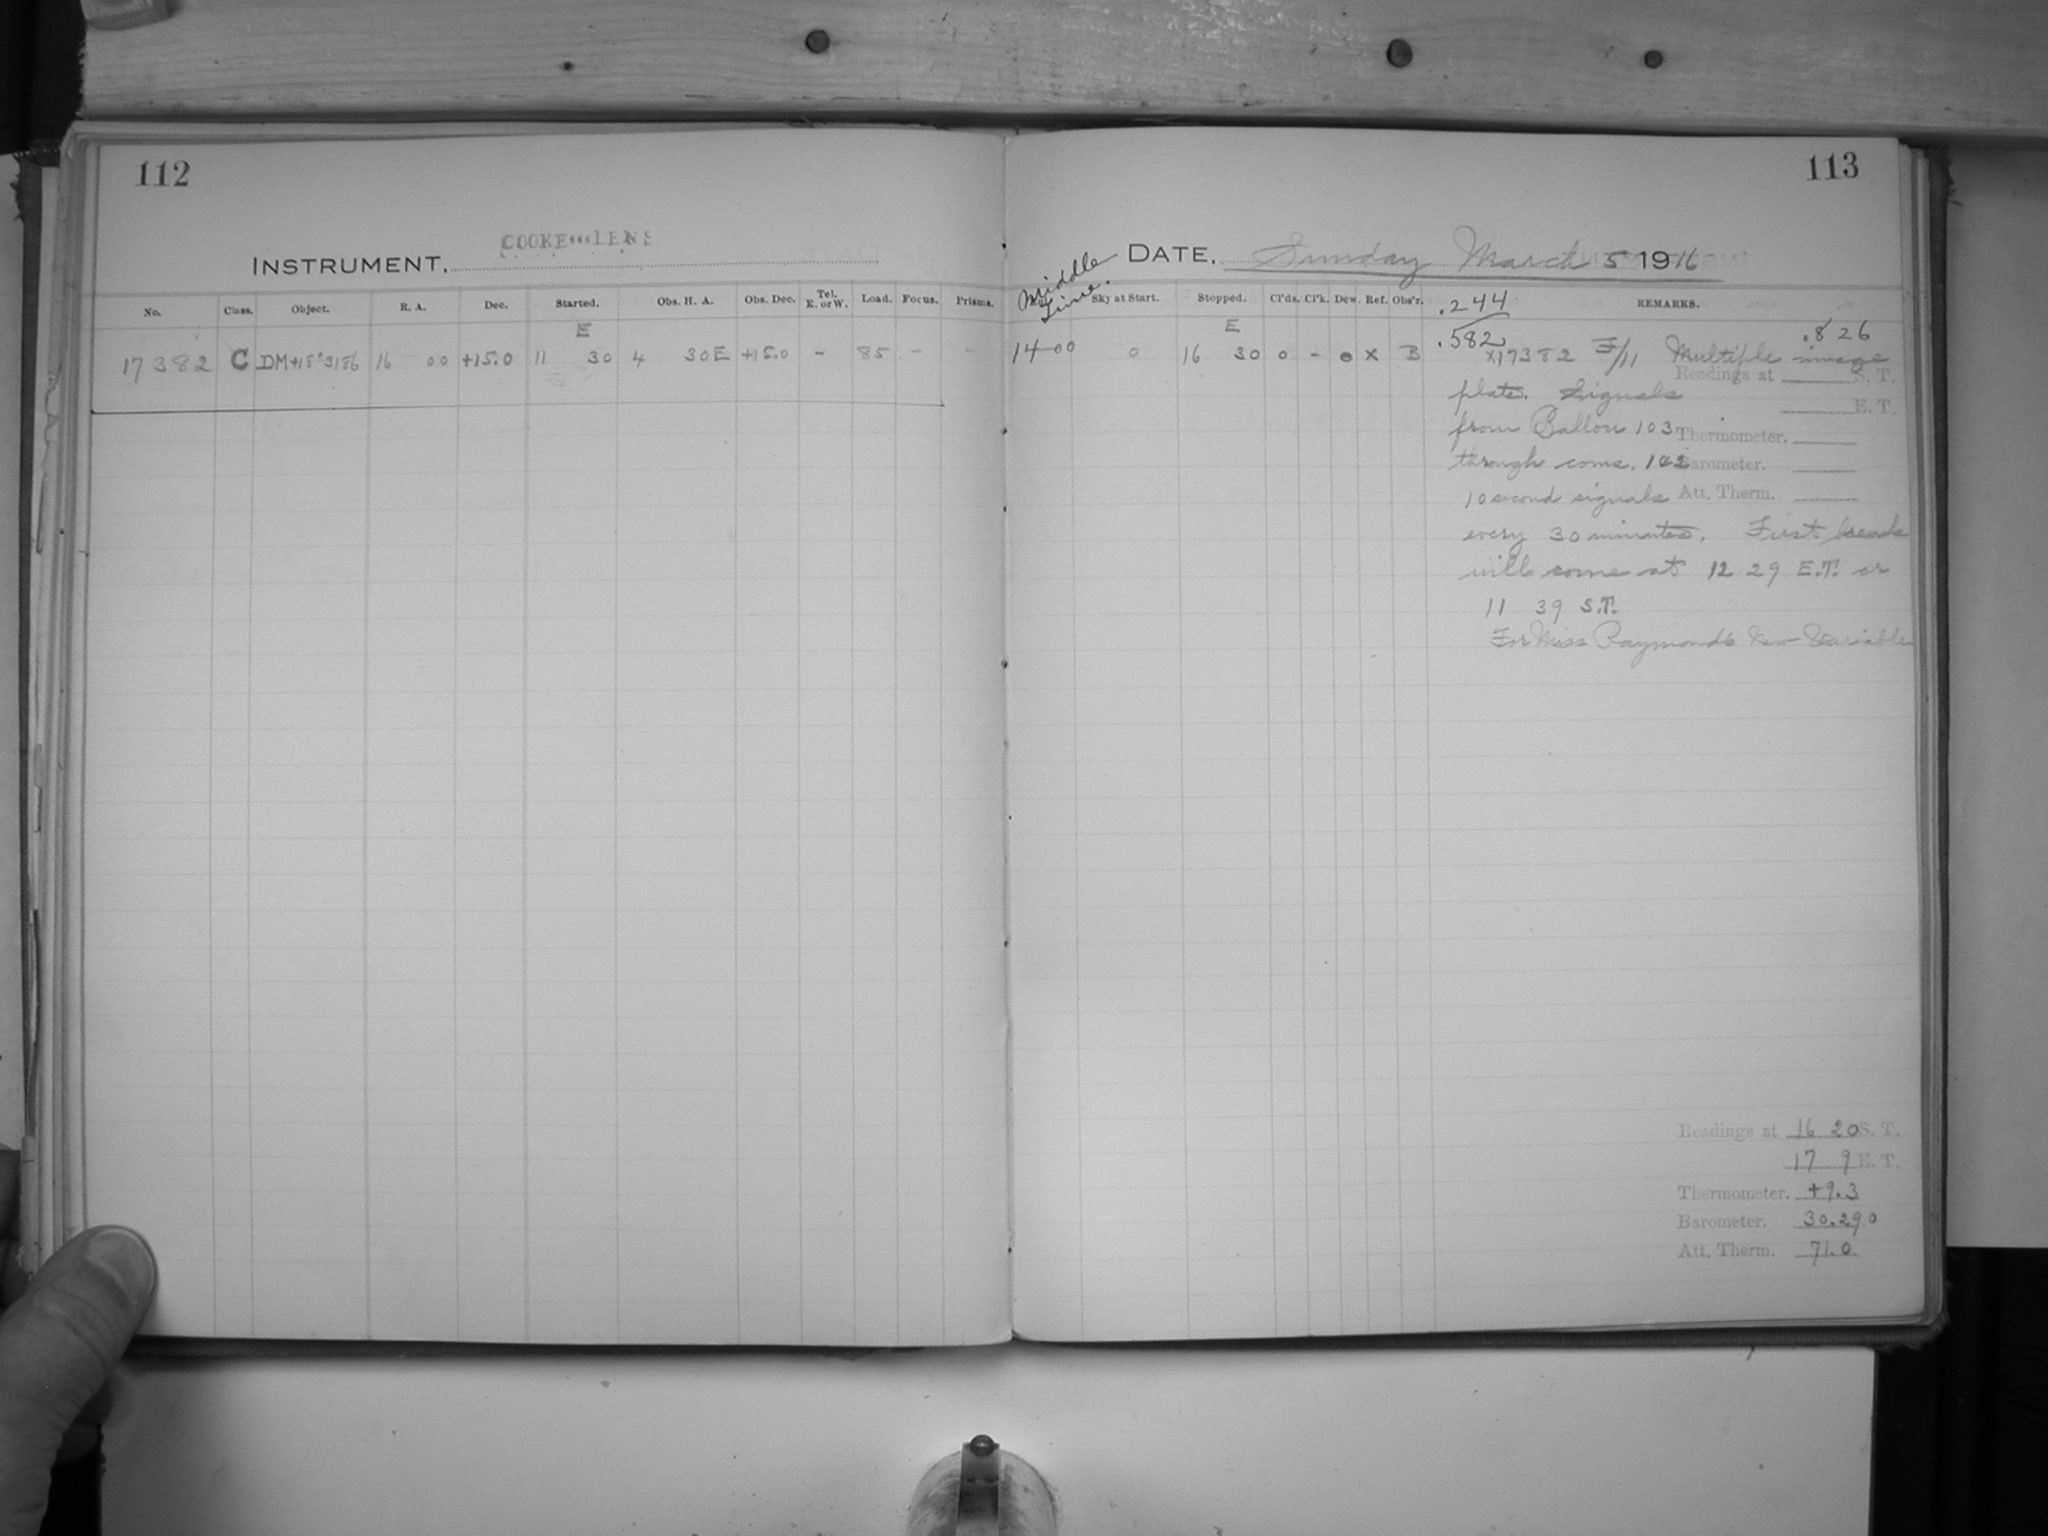 112
113
COOKE LENS
INSTRUMENT.
Middle Time.
DATE. Sunday March 5 1916
No. Class. Object. R. A. Dec. Started. Obs. H. A. Obs. Dec. Tel. E. or W. Load. Focus. Prisms.
Sky at Start. Stopped. Cl'ds. Cl'k. Dew. Ref. Obs'r. .244 REMARKS.
E
E
.582 .826
17382 C DM+15°3186 16 00 +15.0 11 30 4 30E +15.0 - 85 - -
14 00 0 16 30 0 - 0 X B X17382 F/11 Multiple image
Readings at S. T.
plate. Signals
E. T.
from Ballou 103
Thermometer.
through coms. 102
Barometer.
10 second signals
Att. Therm.
every 30 minutes. First break
will come at 12 29 E.T. or
11 39 S.T.
For Miss Raymond's New Variable
Readings at 16 20 S. T.
17 9 E. T.
Thermometer. +9.3
Barometer. 30.290
Att. Therm. 71.0